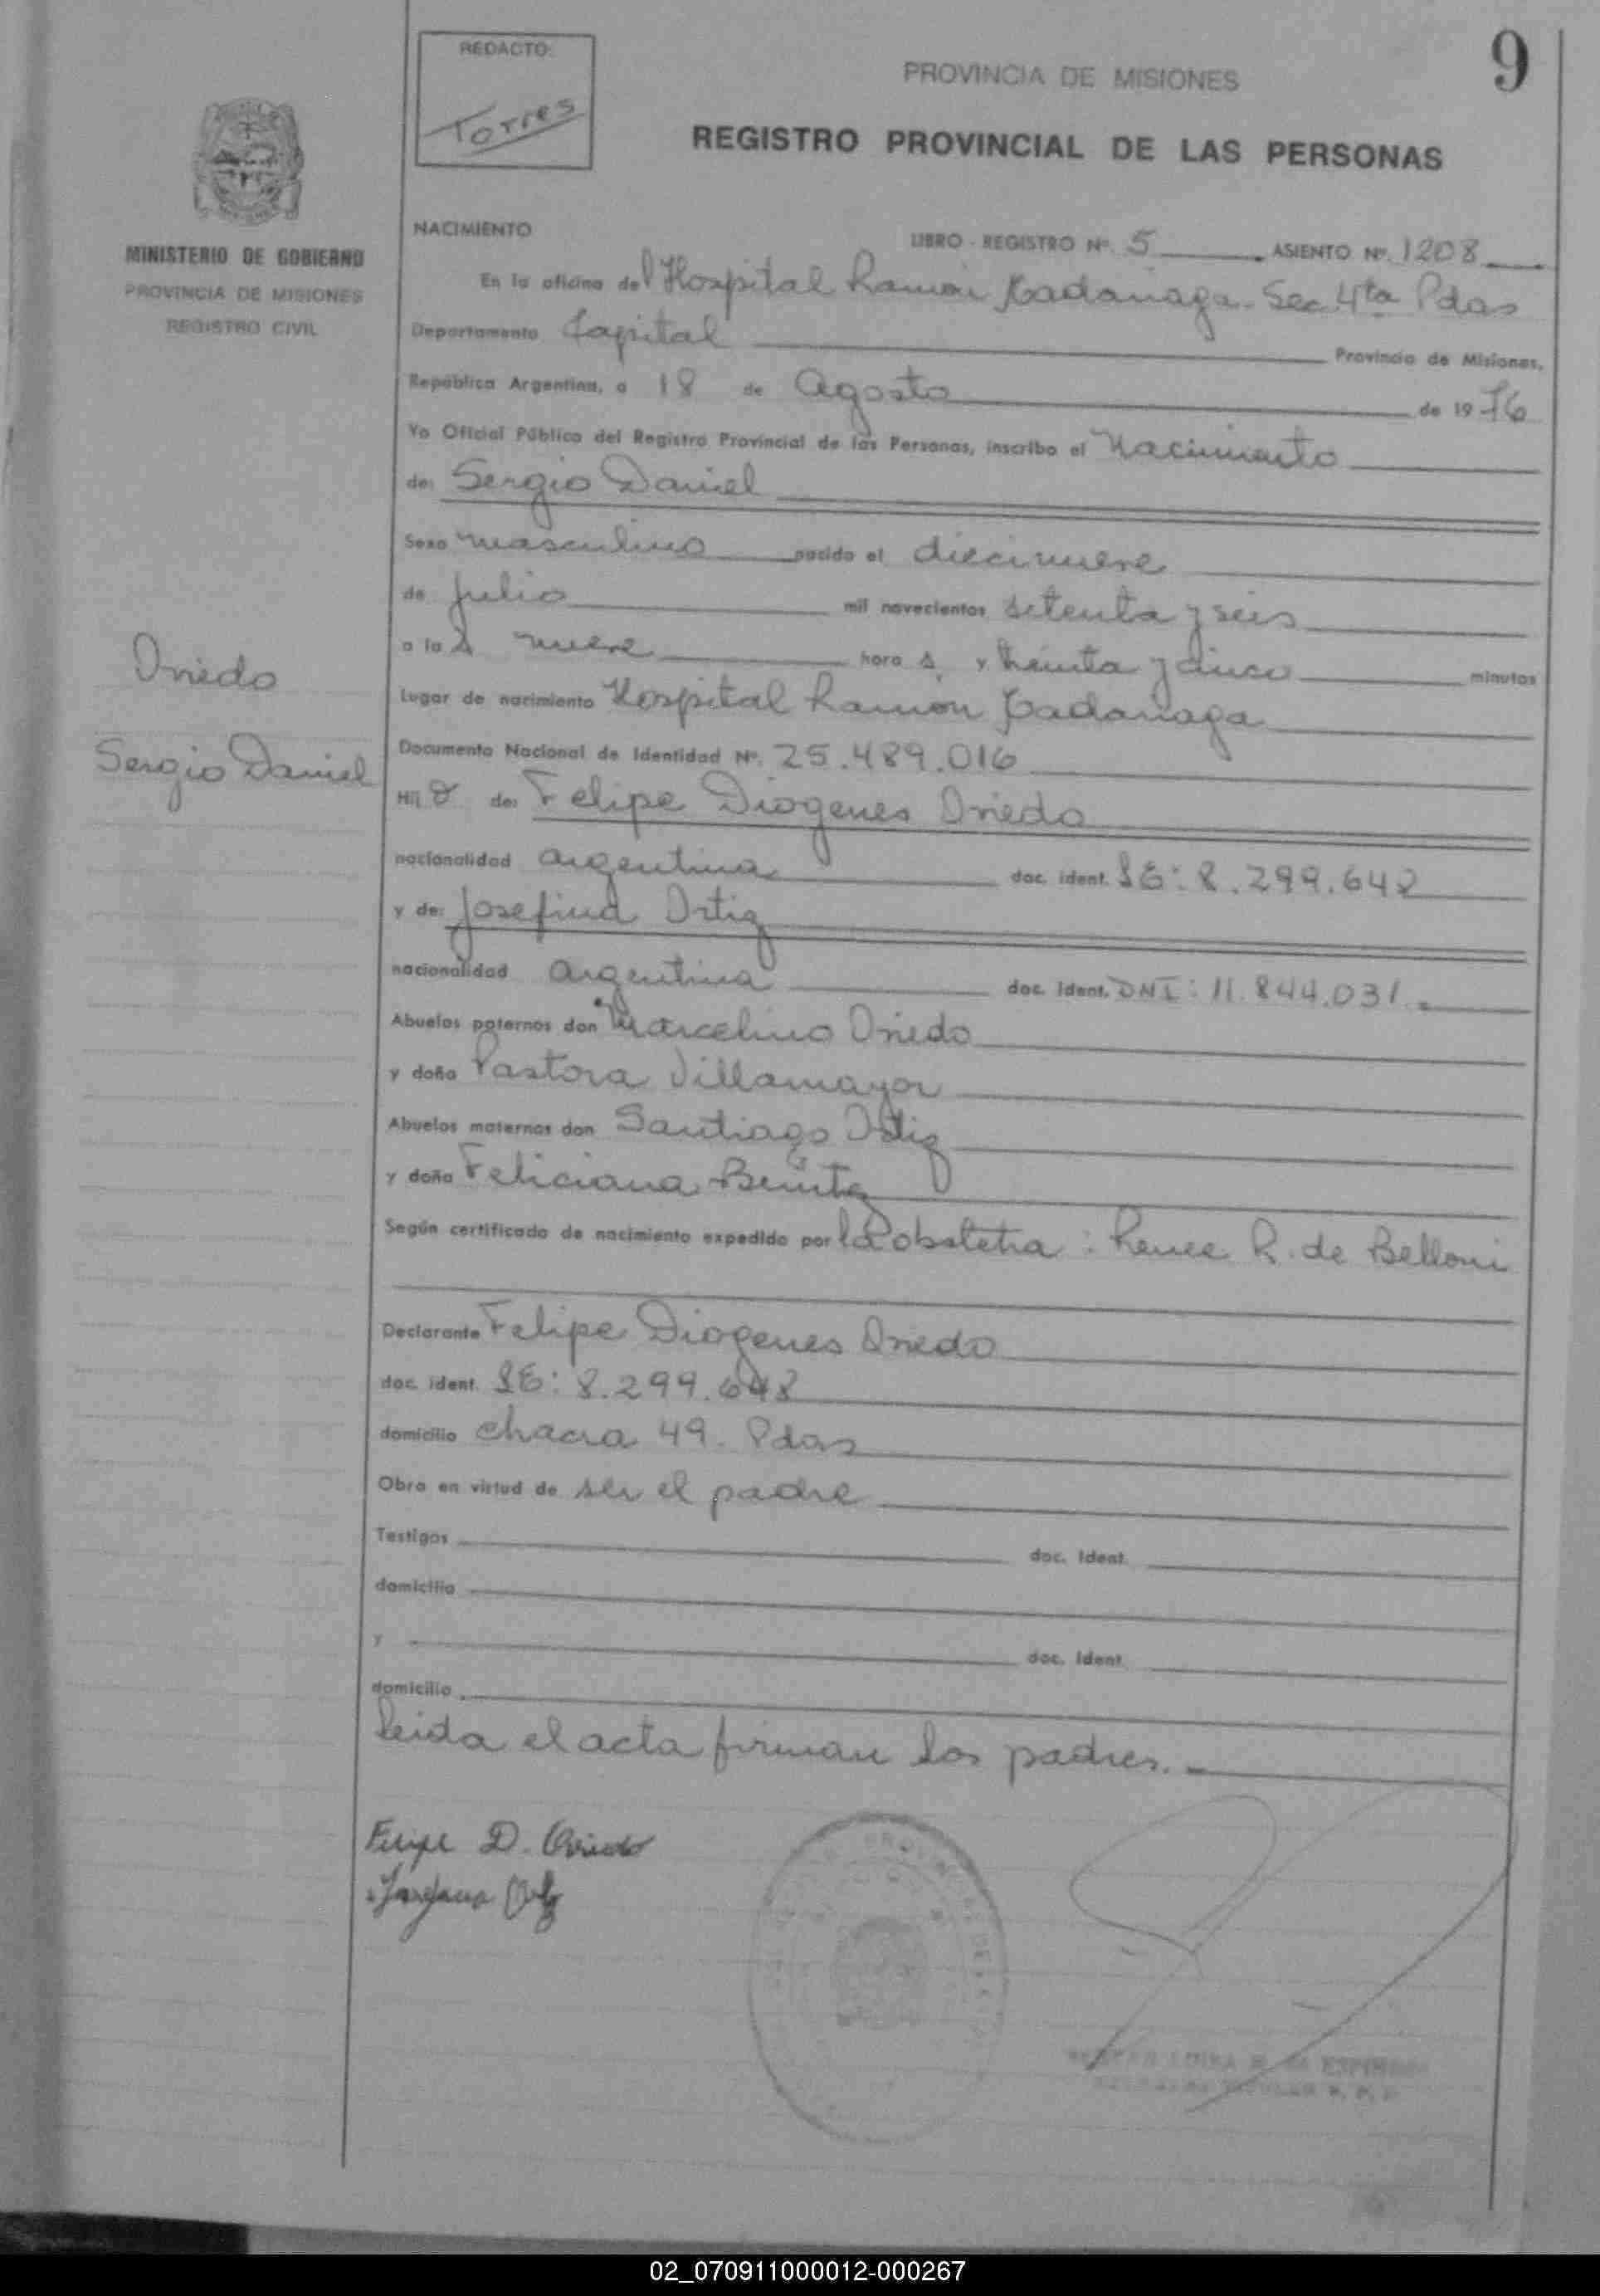 REDACTO:
Torres
9
PROVINCIA DE MISIONES
REGISTRO PROVINCIAL DE LAS PERSONAS
MINISTERIO DE GOBIERNO
PROVINCIA DE MISIONES
REGISTRO CIVIL
NACIMIENTO
LIBRO - REGISTRO Nº. 5 ASIENTO Nº. 1208
En la oficina del Hospital Ramón Madariaga - Sec. 4ta Pdas
Departamento Capital Provincia de Misiones,
República Argentina, a 18 de Agosto de 1976
Yo Oficial Público del Registro Provincial de las Personas, inscribo el Nacimiento
de: Sergio Daniel
Sexo masculino nacido el diecinueve
de julio mil novecientos setenta y seis
a las nueve horas y treinta y cinco minutos
Lugar de nacimiento Hospital Ramón Madariaga
Documento Nacional de Identidad Nº. 25.489.016
Oviedo
Sergio Daniel
Hijo de: Felipe Diogenes Oviedo
nacionalidad argentina doc. ident. LE: 8.299.648
y de: Josefina Ortiz
nacionalidad argentina doc. ident. DNI: 11.844.031.
Abuelos paternos don Marcelino Oviedo
y doña Pastora Villamayor
Abuelos maternos don Santiago Ortiz
y doña Feliciana Benitez
Según certificado de nacimiento expedido por la obstetra: Renee R. de Belloni
Declarante Felipe Diogenes Oviedo
doc. ident. LE: 8.299.648
domicilio chacra 49. Pdas
Obra en virtud de ser el padre
Testigos doc. ident.
domicilio
y doc. ident.
domicilio
leida el acta firman los padres.
Felipe D. Oviedo
Josefina Ortiz
02_070911000012-000267